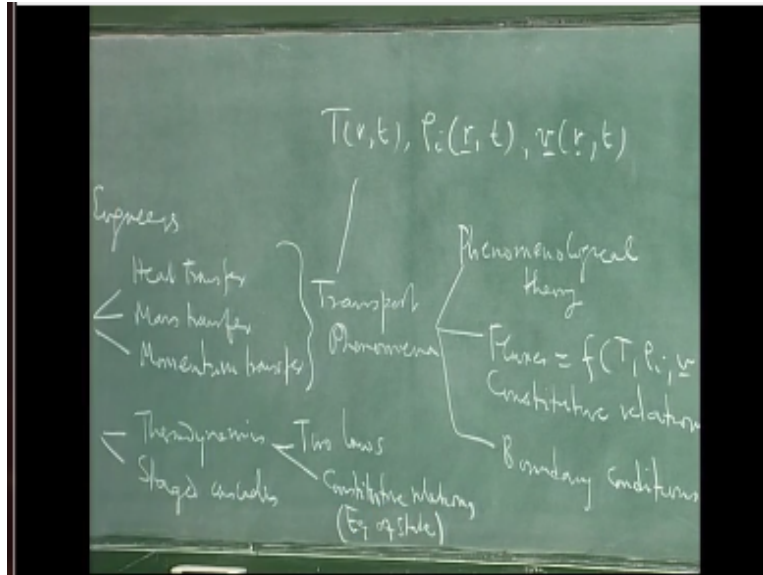 T(r,t), ρi(r,t), v(r,t)
Engineers
Heat Transfer
Mass transfer
Momentum transfer
Transport
Phenomena
Phenomenological
theory
Fluxes = f(T, ρi, v
Constitutive relation
Boundary conditions
Thermodynamics
Staged cascades
Two laws
Constitutive relations
(Eq of State)